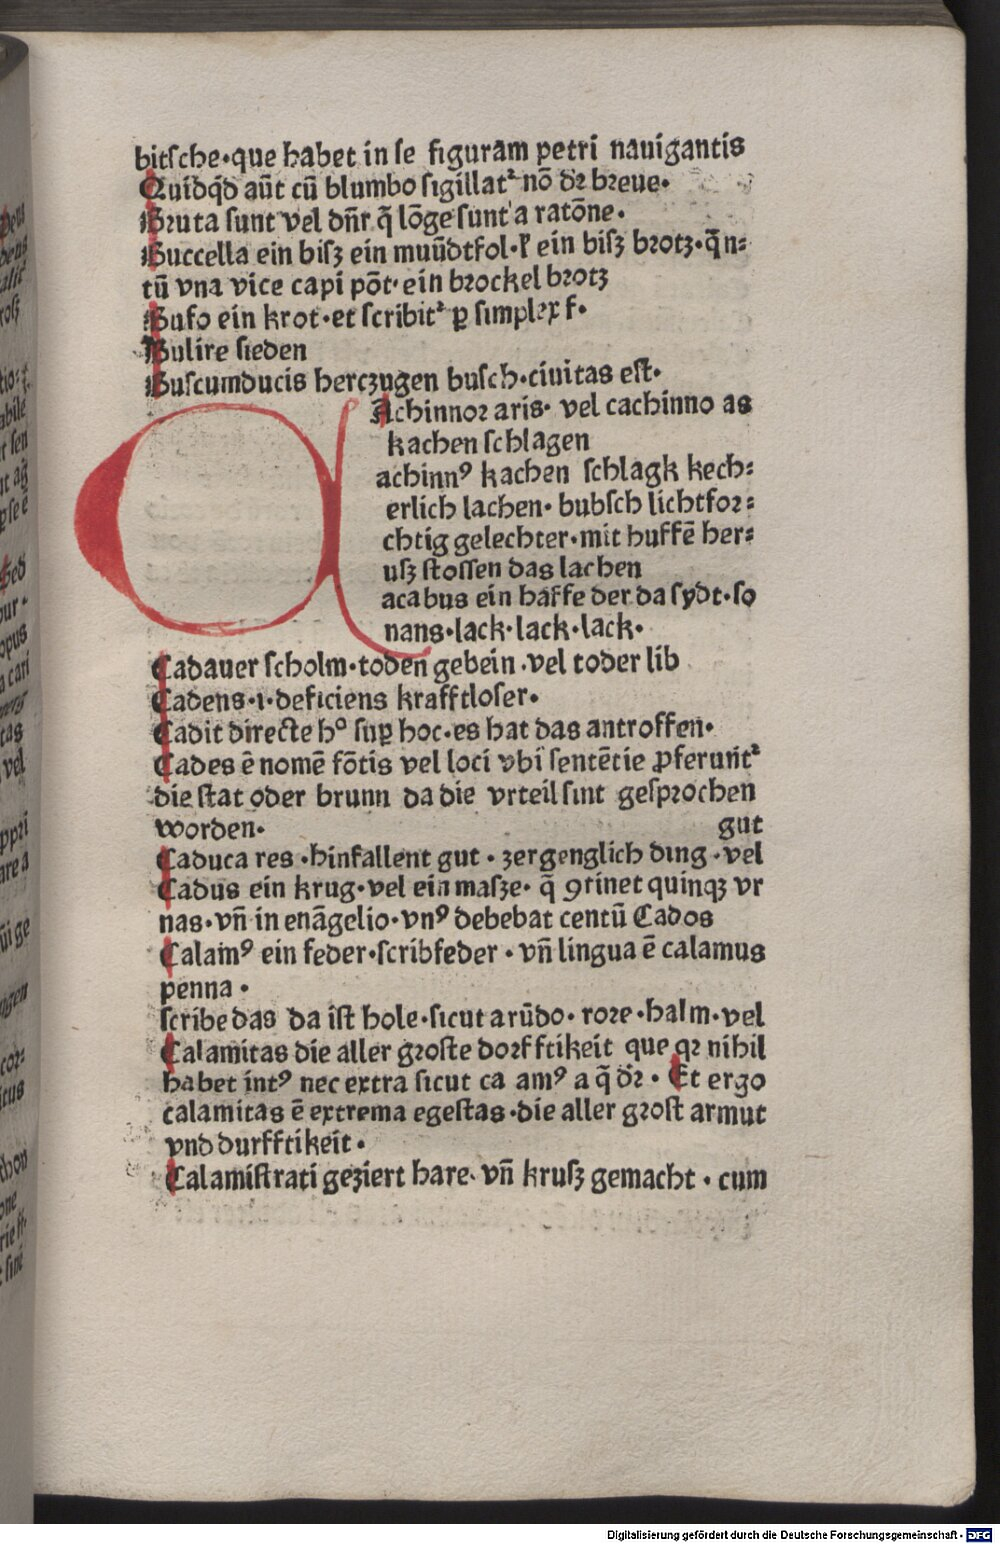 bitſche·que habet in ſe figuram petri nauigantis
Quidqd̄ aūt cū blumbo ſigillatᷣ nō dꝛ bꝛeue·
Bruta ſunt vel dn̄r q̄ lōge ſunt a ratōne·
Buccella ein biſz ein muūdtfol· ein biſz brotz·q̄n⸗
tū vna vice capi pōt·ein bꝛockel bꝛotz
Bufo ein krot·et ſcribitᷣ ꝑ ſimplex f·
Bulire ſieden
Buſcumducis herczugen buſch·ciuitas eſt·
Achinnoꝛ aris· vel cachinno as
kachen ſchlagen
achinnꝰ kachen ſchlagk kech⸗
erlich lachen· bubſch lichtfoꝛ⸗
chtig gelechter·mit huffē her⸗
uſz ſtoſſen das lachen
acabus ein haffe der da ſydt·ſo
nans·lack·lack·lack·
Cadauer ſcholm·toden gebein·vel toder lib
Cadens·i·deficiens krafftloſer·
Cadit directe hͦ ſuꝑ hoc·es hat das antroffen·
Cades ē nomē fōtis vel loci vbi ſentētie ꝓferunt̄ᷣ
die ſtat oder brunn da die vrteil ſint geſpꝛochen
worden· gut
Caduca res·hinfallent gut·zergenglich ding·vel
Cadus ein krug·vel ein maſze·q̄ ꝯtinet quinqꝫ vr
nas·vn̄ in enāgelio·vnꝰ debebat centū Cados
Calamꝰ ein feder·ſcribfeder·vn̄ lingua ē calamus
penna·
ſcribe das da iſt hole·ſicut arūdo·roꝛe·halm·vel
Calamitas die aller gꝛoſte doꝛfftikeit que qꝛ nihil
habet intꝰ nec extra ſicut ca amꝰ a q̄ dꝛ̄·Et ergo
calamitas ē extrema egeſtas·die aller gꝛoſt armut
vnd durfftikeit·
Calamiſtrati geziert hare·vn̄ kruſz gemacht·cum
Digitalisierung gefördert durch die Deutsche Forschungsgemeinschaft - DFG